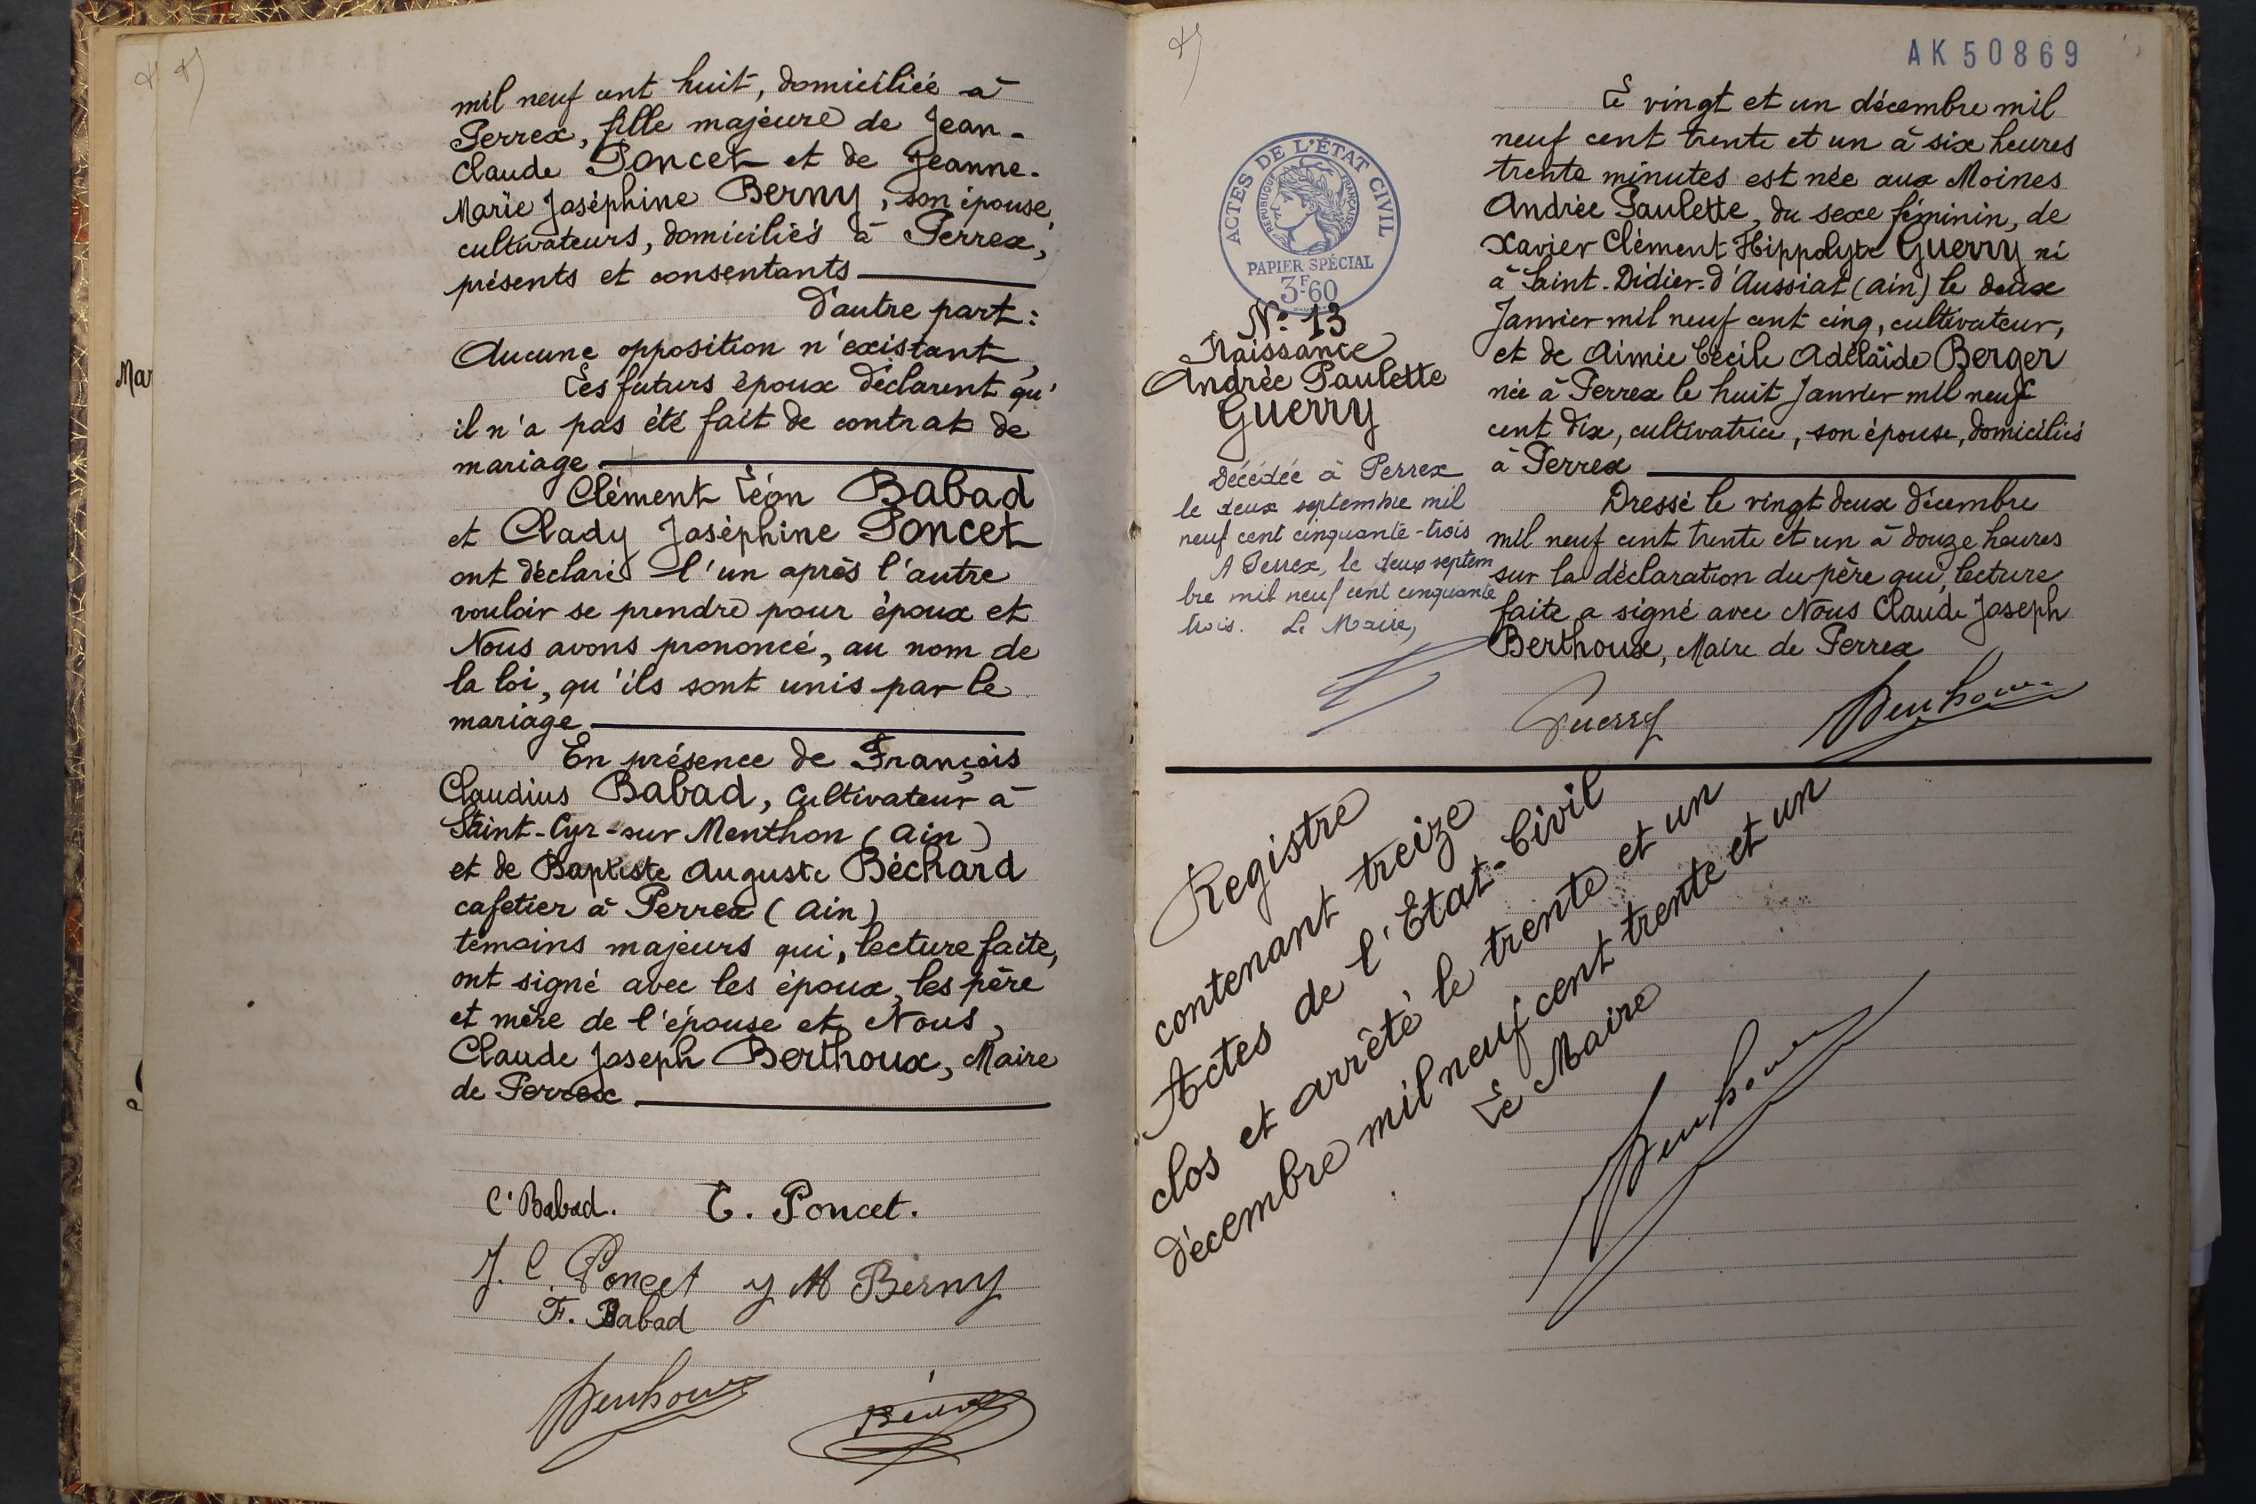 mil neuf cent huit, domiciliée à
Perrex, fille majeure de Jean-
Claude Poncet et de Jeanne-
Marie Joséphine Berny, son épouse,
cultivateurs, domiciliés à Perrex,
présents et consentants
D'autre part:
Aucune opposition n'existant,
Les futurs époux déclarent qu'
il n'a pas été fait de contrat de
mariage
Clément Léon Babad
et Clady Joséphine Poncet
ont déclaré l'un après l'autre
vouloir se prendre pour époux et
Nous avons prononcé, au nom de
la loi, qu'ils sont unis par le
mariage
En présence de François
Claudius Babad, Cultivateur à
Saint-Cyr-sur Menthon (Ain)
et de Baptiste Auguste Béchard
cafetier à Perrex (Ain)
témoins majeurs qui, lecture faite,
ont signé avec les époux, les père
et mère de l'épouse et Nous,
Claude Joseph Berthoux, Maire
de Perrex
C. Babad. C. Poncet.
J. C. Poncet J M Berny
F. Babad
Mar
AK 50869
ACTES DE L'ÉTAT CIVIL
RÉPUBLIQUE FRANÇAISE
PAPIER SPÉCIAL
3F60
N° 13
Naissance
Andrée Paulette
Guerry
Décédée à Perrex
le deux septembre mil
neuf cent cinquante-trois
A Perrex, le deux septem
bre mil neuf cent cinquante
trois. Le Maire,
Le vingt et un décembre mil
neuf cent trente et un à six heures
trente minutes est née aux Moines
Andrée Paulette, du sexe féminin, de
Xavier Clément Hippolyte Guerry né
à Saint-Didier-d'Aussiat (Ain) le deux
Janvier mil neuf cent cinq, cultivateur,
et de Aimée Cécile Adélaïde Berger
née à Perrex le huit Janvier mil neuf
cent dix, cultivatrice, son épouse, domiciliés
à Perrex
Dressé le vingt deux décembre
mil neuf cent trente et un à douze heures
sur la déclaration du père qui, lecture
faite a signé avec Nous Claude Joseph
Berthoux, Maire de Perrex
Guerry
Registre
contenant treize
Actes de l'Etat-Civil
clos et arrêté le trente et un
décembre mil neuf cent trente et un
Le Maire